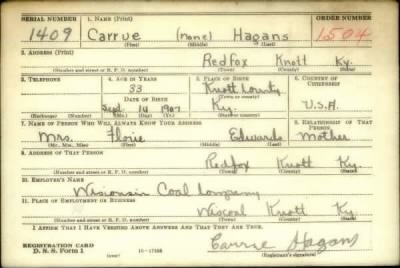 SERIAL NUMBER 1. NAME (Print) ORDER NUMBER
1409 Carrue (none) Hagans 1504
(First) (Middle) (Last)
2. ADDRESS (Print)
Redfox Knott Ky.
(Number and street or R. F. D. number) (Town) (County) (State)
3. TELEPHONE 4. AGE IN YEARS 5. PLACE OF BIRTH 6. COUNTRY OF CITIZENSHIP
33 Knott County
DATE OF BIRTH (Town or county)
Sept. 14 1907 Ky. U.S.A.
(Exchange) (Number) (Mo.) (Day) (Yr.) (State or country)
7. NAME OF PERSON WHO WILL ALWAYS KNOW YOUR ADDRESS 8. RELATIONSHIP OF THAT PERSON
Mrs. Florie Edwards Mother
(Mr., Mrs., Miss) (First) (Middle) (Last)
9. ADDRESS OF THAT PERSON
Redfox Knott Ky.
(Number and street or R. F. D. number) (Town) (County) (State)
10. EMPLOYER'S NAME
Wisconsin Coal Company
11. PLACE OF EMPLOYMENT OR BUSINESS
Wiscoal Knott Ky.
(Number and street or R. F. D. number) (Town) (County) (State)
I AFFIRM THAT I HAVE VERIFIED ABOVE ANSWERS AND THAT THEY ARE TRUE.
REGISTRATION CARD
D. S. S. Form 1 16-17105 Carrue Hagans
(Registrant's signature)